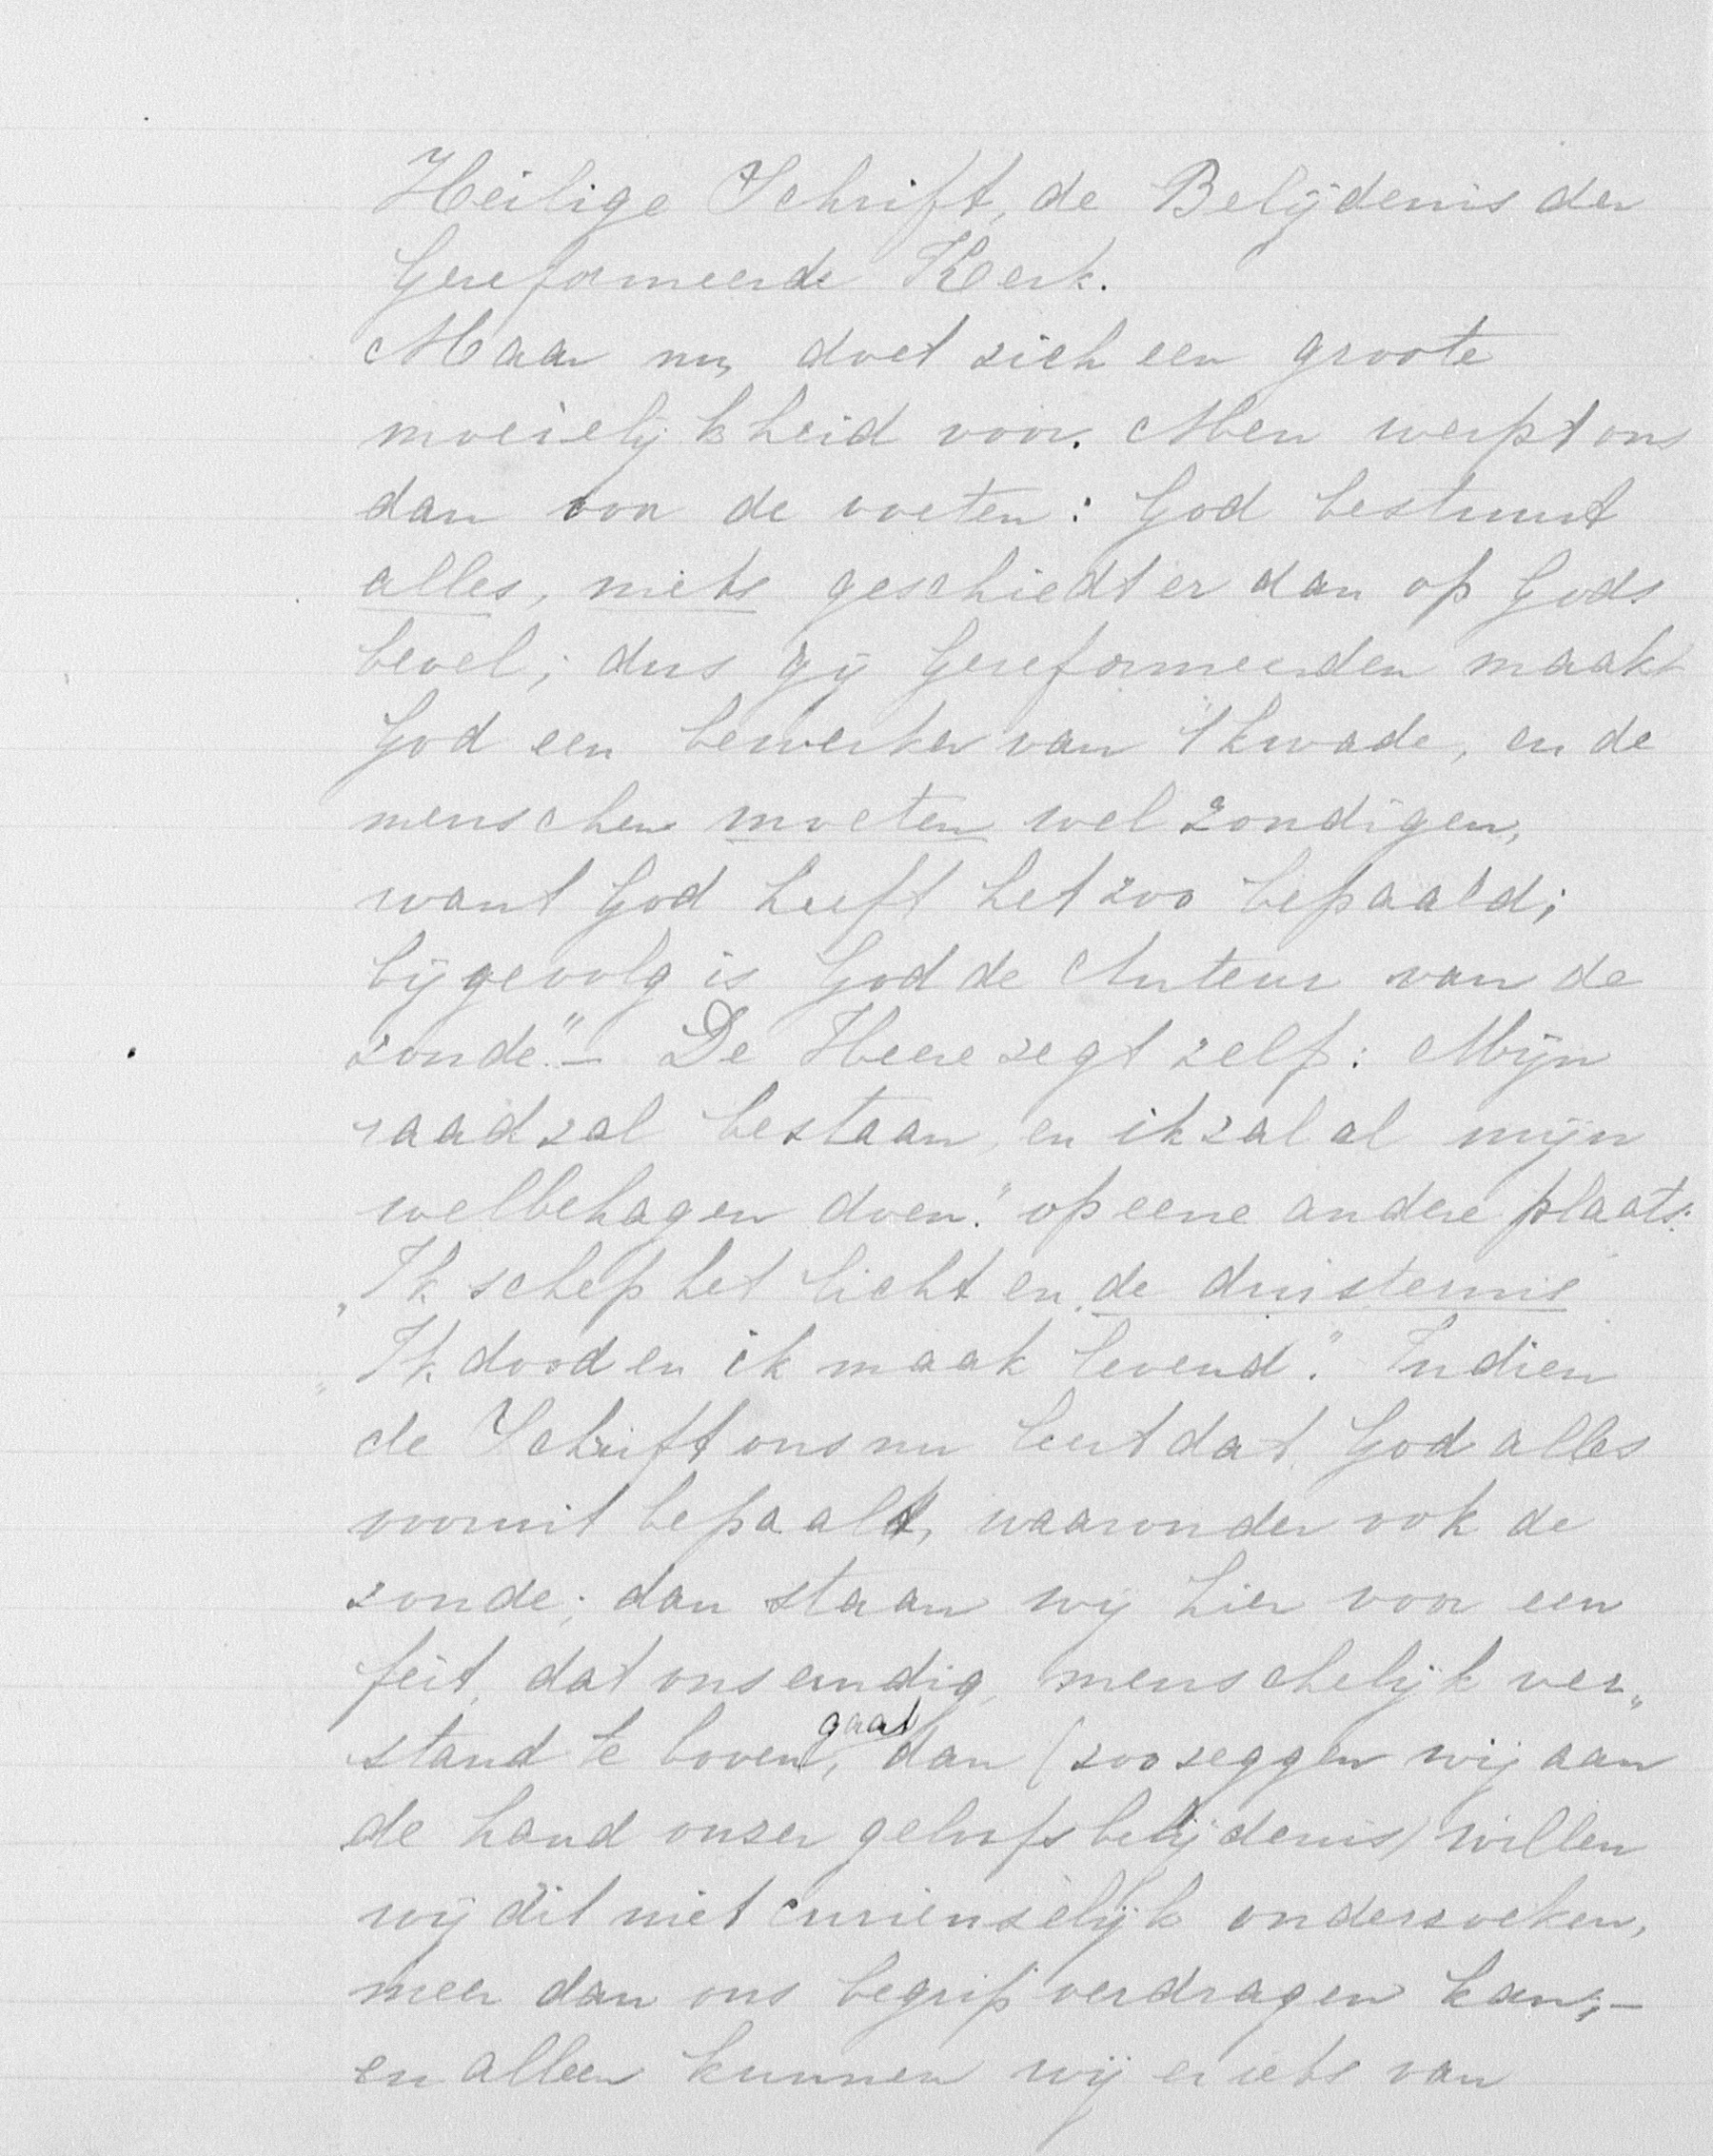 Heilige Schrift, de Belijdenis der
Gereformeerde Kerk.
Maar nu, doet zich een groote
moeielijkheid voor. Men werpt ons
dan voor de voeten: God bestuurt
alles, niets geschiedt er dan op Gods
bevel; dus gij Gereformeerden maakt
God een bewerker van 't kwade, en de
menschen moeten wel zondigen,
want God heeft het zoo bepaald;
bijgevolg is God de Auteur van de
zonde." – De Heere zegt zelf: Mijn
raad zal bestaan, en ik zal al mijn
welbehagen doen." op eene andere plaats:
"Ik schep het licht en de duisternis
"Ik dood en ik maak levend." Indien
de Schrift ons nu leert dat God alles
vooruit bepaalt, waaronder ook de
zonde; dan staan wij hier voor een
feit, dat ons eindig, menschelijk ver„
stand te boven gaat, dan (zoo zeggen wij aan
de hand onzer geloofsbelijdenis) willen
wij dit niet curieuselijk onderzoeken,
meer dan ons begrip verdragen kan; –
en alleen kunnen wij er iets van